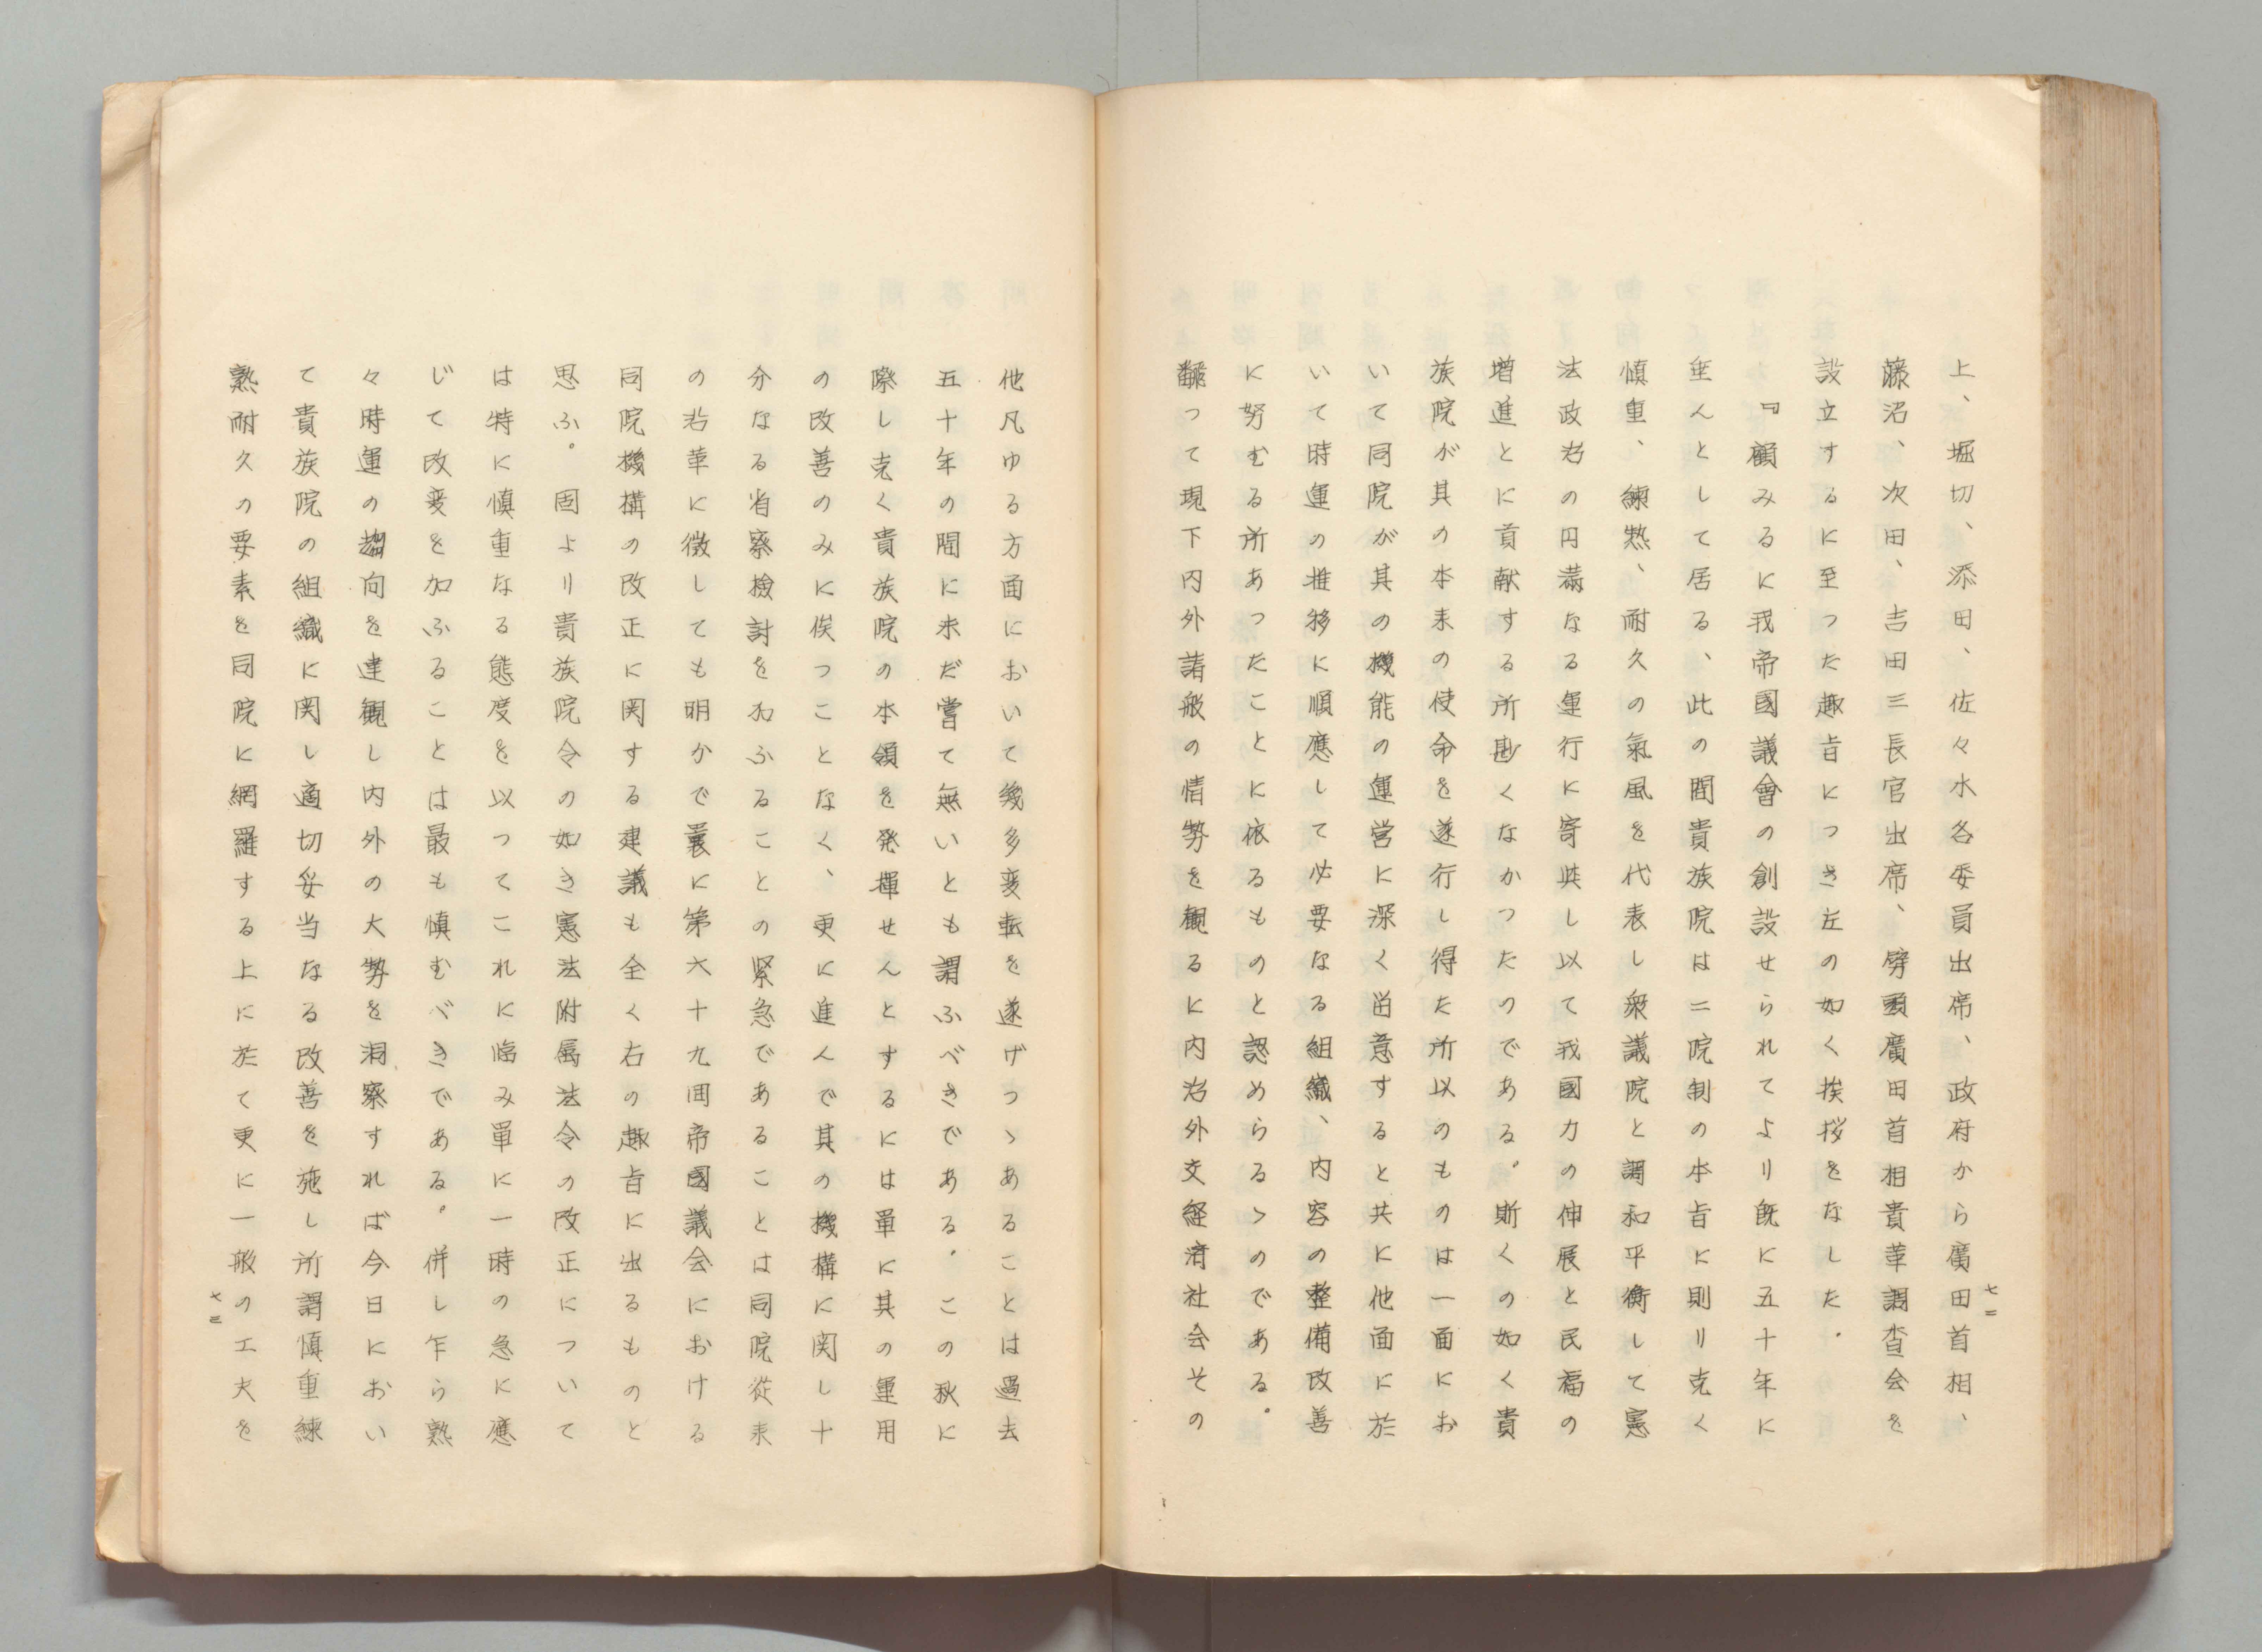 上、堀切、添田、佐々木各委員出席、政府から廣田首相、
藤沼、次田、吉田三長官出席、劈頭廣田首相貴革調査会を
設立するに至つた趣旨につき左の如く挨拶をなした。
『顧みるに我帝國議會の創設せられてより既に五十年に
垂んとして居る、此の間貴族院は二院制の本旨に則り克く
慎重、練熟、耐久の氣風を代表し衆議院と調和平衡して憲
法政治の円満なる運行に寄與し以て我國力の伸展と民福の
増進とに貢献する所尠くなかつたのである。斯くの如く貴
族院が其の本来の使命を遂行し得た所以のものは一面にお
いて同院が其の機能の運営に深く留意すると共に他面に於
いて時運の推移に順應して必要なる組織、内容の整備改善
に努むる所あつたことに依るものと認めらるゝのである。
飜つて現下内外諸般の情勢を観るに内治外交経済社会その
七二
他凡ゆる方面において幾多変転を遂げつゝあることは過去
五十年の間に未だ嘗て無いとも謂ふべきである。この秋に
際し克く貴族院の本領を発揮せんとするには単に其の運用
の改善のみに俟つことなく、更に進んで其の機構に関し十
分なる省察検討を加ふることの緊急であることは同院従来
の沿革に徴しても明かで曩に第六十九囘帝國議会における
同院機構の改正に関する建議も全く右の趣旨に出るものと
思ふ。固より貴族院令の如き憲法附属法令の改正について
は特に慎重なる態度を以つてこれに臨み単に一時の急に應
じて改変を加ふることは最も慎むべきである。併し乍ら熟
々時運の趨向を達観し内外の大勢を洞察すれば今日におい
て貴族院の組織に関し適切妥当なる改善を施し所謂慎重練
熟耐久の要素を同院に網羅する上に於て更に一般の工夫を
七三